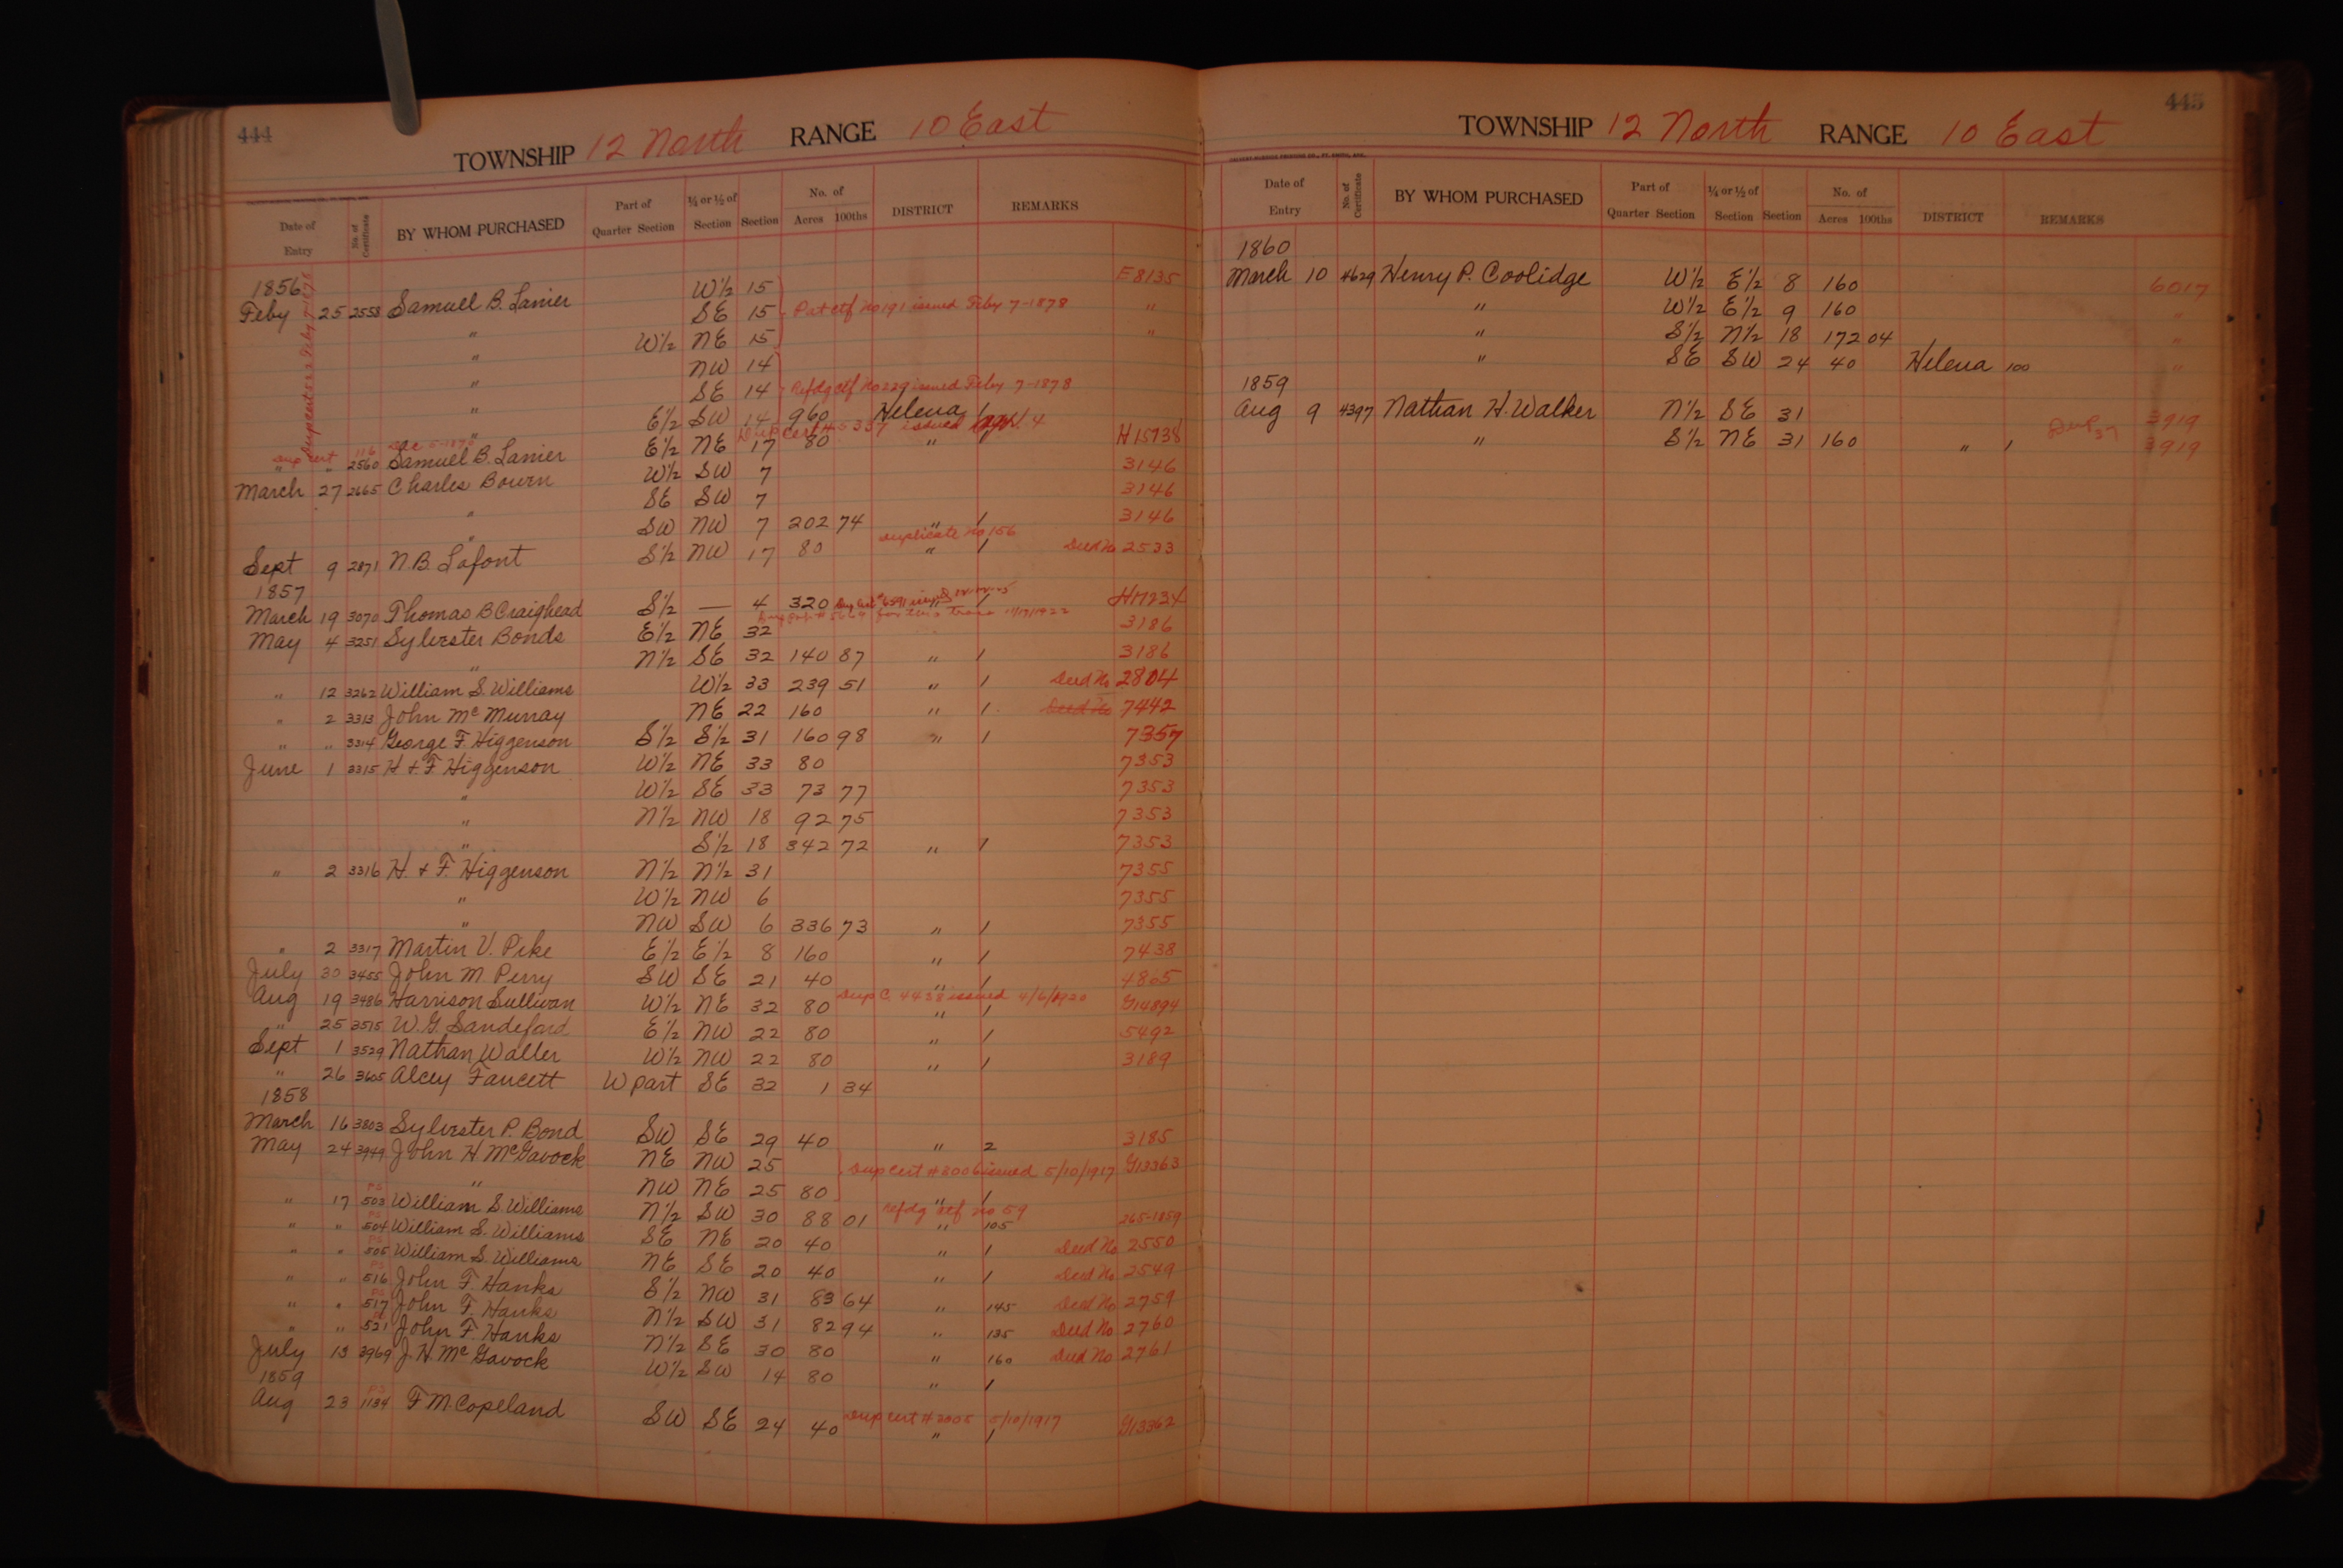 444
TOWNSHIP 12 North RANGE 10 East
Date of Entry No. of Certificate BY WHOM PURCHASED Part of Quarter Section ¼ or ½ of Section Section No. of Acres 100ths DISTRICT REMARKS
1856 W½ 15 E8135
Feby 25 2558 Samuel B. Lanier SE 15 Pat ctf No 191 issued Feby 7-1878 "
" W½ NE 15 "
" NW 14
" SE 14 Refdg ctf No 229 issued Feby 7-1878
" E½ SW 14 960 Helena 1
Dup cert 116 Dec 5-1870 Dup Cert # 5337 issued
" " 2560 Samuel B. Lanier E½ NE 17 80 " H15738
March 27 2665 Charles Bowen W½ SW 7 3146
" SE SW 7 3146
" SW NW 7 202 74 " 1 3146
duplicate No 156
Sept 9 2871 N.B. Lafont S½ NW 17 80 " 1 Deed No 2533
1857
March 19 3070 Thomas B Craighead S½ — 4 320 " 1 H17234
May 4 3251 Sylvester Bonds E½ NE 32 3186
" N½ SE 32 140 87 " 1 3186
" 12 3262 William S. Williams W½ 33 239 51 " 1 Deed No 2804
" 2 3313 John Mc Murray NE 22 160 " 1 Deed No 7442
" " 3314 George F. Higgenson S½ S½ 31 160 98 " 1 7357
June 1 3315 H + F. Higgenson W½ NE 33 80 7353
" W½ SE 33 73 77 7353
" N½ NW 18 92 75 7353
" S½ 18 342 72 " 1 7353
" 2 3316 H. + F. Higgenson N½ N½ 31 7355
" W½ NW 6 7355
" NW SW 6 336 73 " 1 7355
" 2 3317 Martin V. Pike E½ E½ 8 160 " 1 7438
July 30 3455 John M. Perry SW SE 21 40 " 1 4865
Dup C. 4438 issued 4/6/1920
Aug 19 3486 Harrison Sullivan W½ NE 32 80 " 1 G14894
" 25 3515 W. G. Sandeford E½ NW 22 80 " 1 5492
Sept 1 3529 Nathan Waller W½ NW 22 80 " 1 3189
" 26 3605 Alcey Faucett W part SE 32 1 34
1858
March 16 3803 Sylvester P. Bond SW SE 29 40 " 2 3185
May 24 3949 John H McGavock NE NW 25 Dup cert # 2006 issued 5/10/1917 G13363
" NW NE 25 80 " 1
Refdg ctf No 59
" 17 PS 503 William S. Williams N½ SW 30 88 01 " 105 265-1859
" " PS 504 William S. Williams SE NE 20 40 " 1 Deed No 2550
" " PS 505 William S. Williams NE SE 20 40 " 1 Deed No 2549
" " PS 516 John F. Hanks S½ NW 31 83 64 " 145 Deed No 2759
" " PS 517 John F. Hanks N½ SW 31 82 94 " 135 Deed No 2760
" " PS 521 John F. Hanks N½ SE 30 80 " 160 Deed No 2761
July 13 3969 J. H. Mc Gavock W½ SW 14 80 " 1
1859
Aug 23 PS 1134 F M. Copeland SW SE 24 40 Dup cert # 2005 5/10/1917 " 1 G13362
445
TOWNSHIP 12 North RANGE 10 East
Date of Entry No. of Certificate BY WHOM PURCHASED Part of Quarter Section ¼ or ½ of Section Section No. of Acres 100ths DISTRICT REMARKS
1860
March 10 4629 Henry P. Coolidge W½ E½ 8 160 6017
" W½ E½ 9 160 "
" S½ N½ 18 172 04 "
" SE SW 24 40 Helena 100 "
1859
Aug 9 4397 Nathan H. Walker N½ SE 31 3919
" S½ NE 31 160 " 1 3919